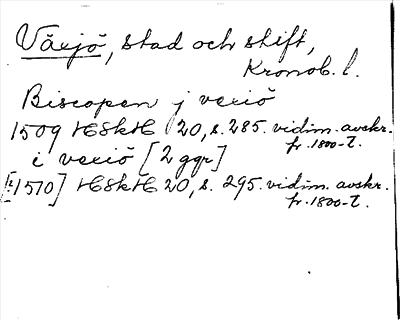 Växjö, stad och stift,
Kronob. l.
Biscopen j vexiö
1509 HSkH 20, s. 285. vidim. avskr.
fr. 1800-t.
i vexiö [2 ggr]
[:1510] HSkH 20, s. 295. vidim. avskr.
fr. 1800-t.